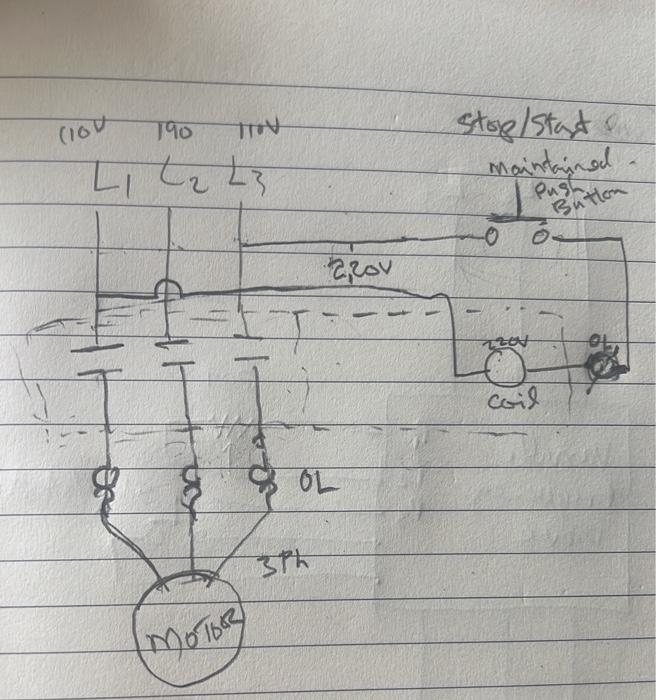 110V 190 110V
L1 L2 L3
Stop/Start
maintained
Push
Button
220V
220V
OL
coil
OL
3Ph
MOTOR